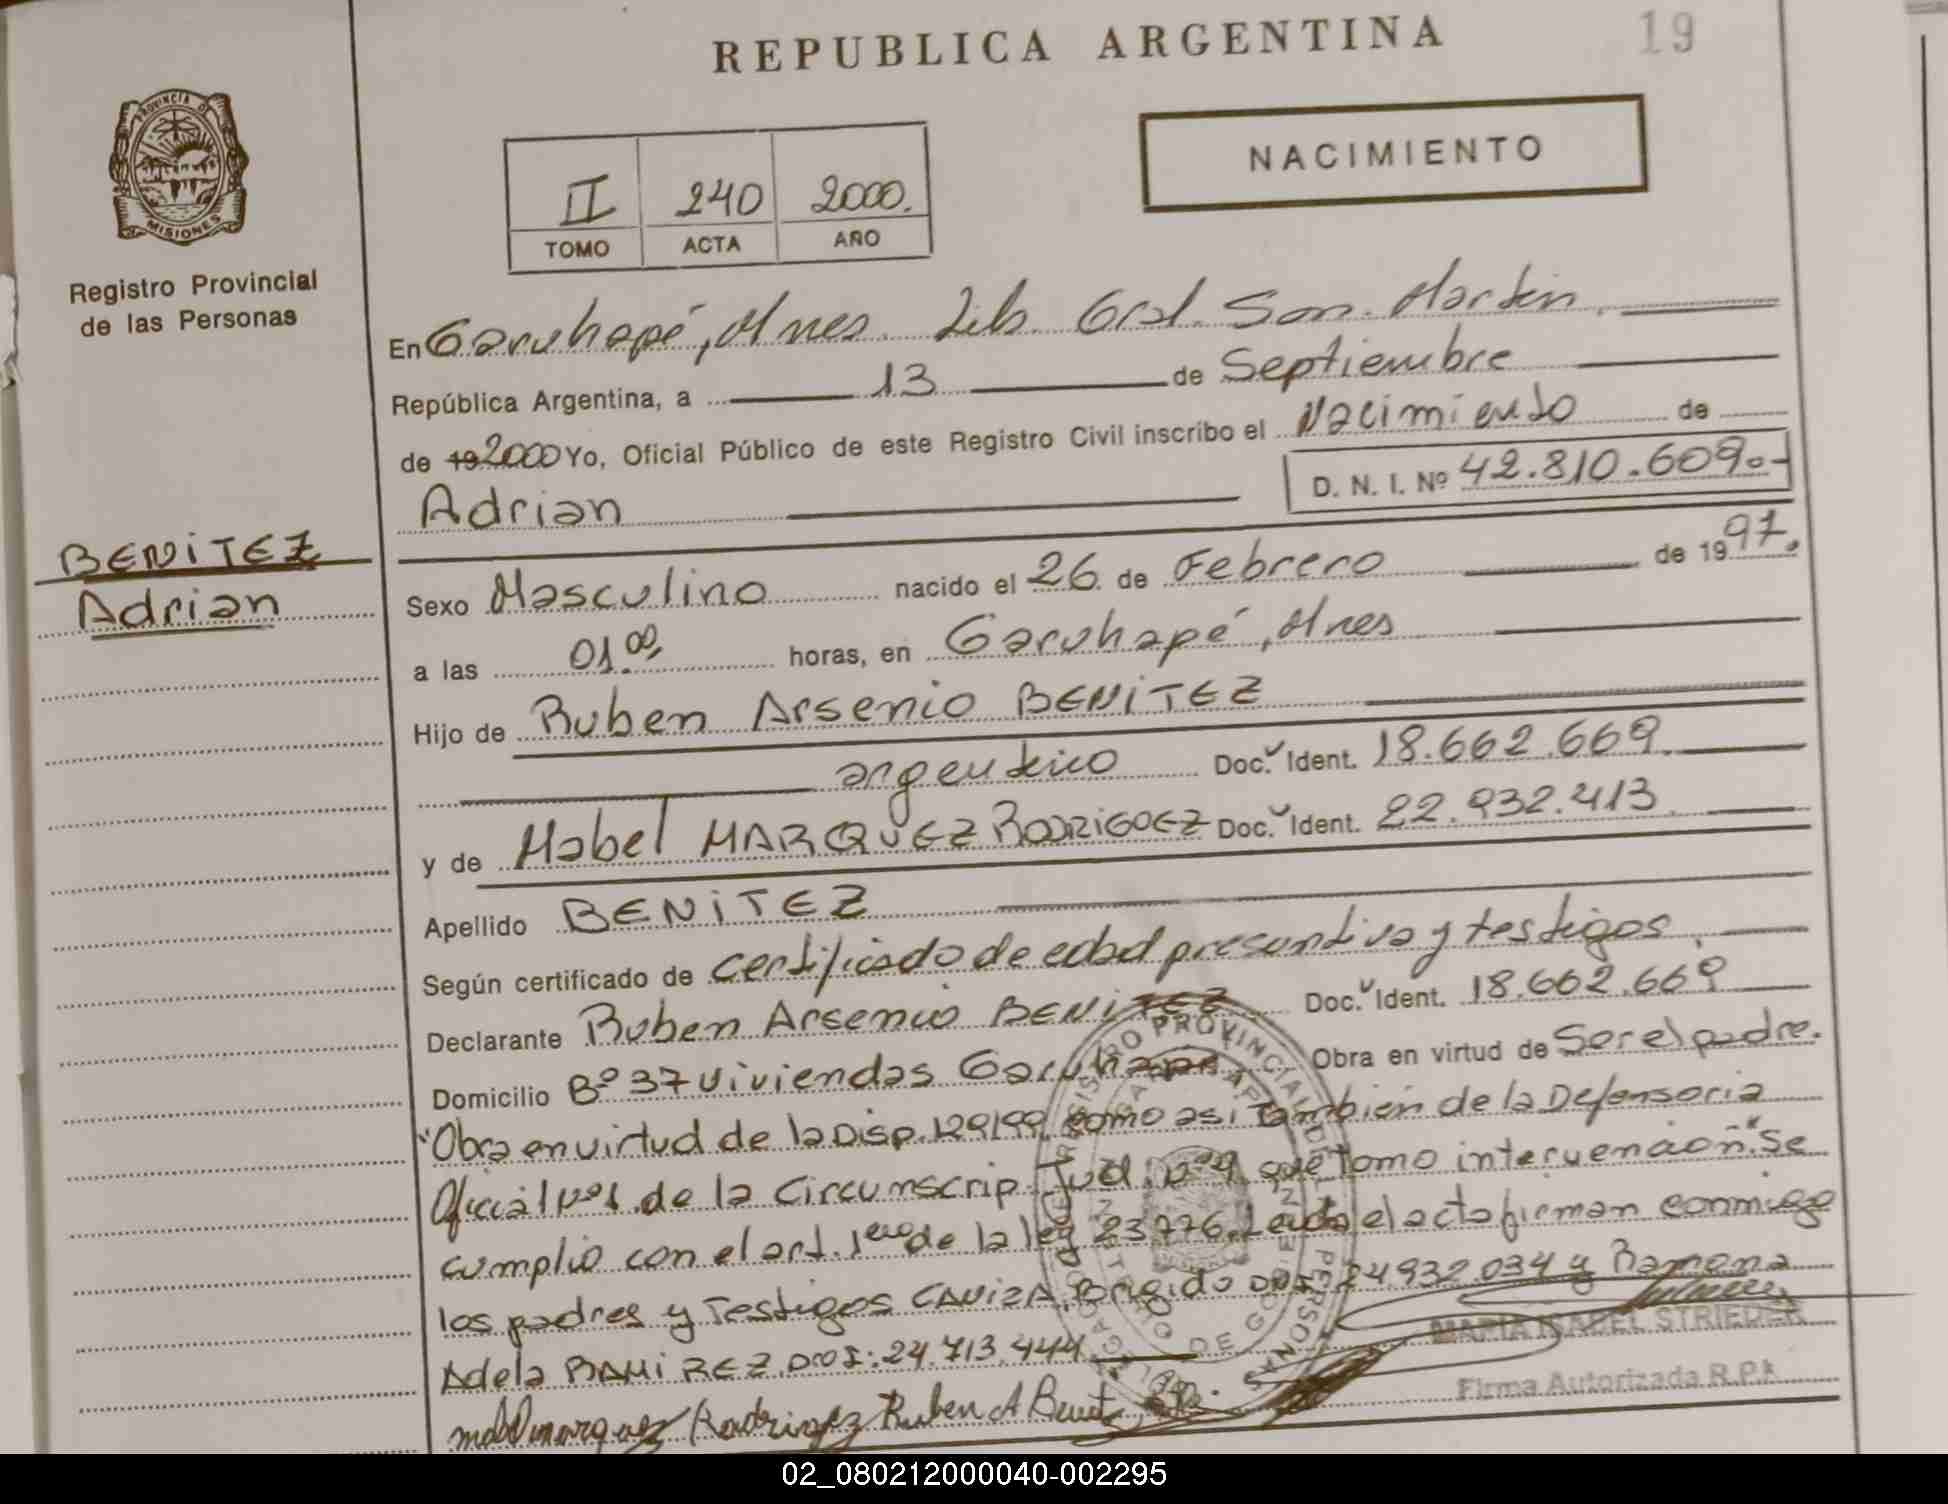 REPUBLICA ARGENTINA
19
PROVINCIA DE
MISIONES
Registro Provincial
de las Personas
NACIMIENTO
II 240 2000.
TOMO ACTA AÑO
En Garuhapé, Mnes. Lib. Gral. San. Martin.
República Argentina, a 13 de Septiembre
de 19 2000 Yo, Oficial Público de este Registro Civil inscribo el Nacimiento de
Adrian D. N. I. Nº 42.810.609.-
BENITEZ
Adrian
Sexo Masculino nacido el 26 de Febrero de 19 97.
a las 01.00, horas, en Garuhapé, Mnes
Hijo de Ruben Arsenio BENITEZ
argentino Doc. Ident. 18.662.669.
y de Mabel MARQUEZ RODRIGUEZ Doc. Ident. 22.932.413
Apellido BENITEZ
Según certificado de certificado de edad presuntiva y testigos.
Declarante Ruben Arsenio BENITEZ Doc. Ident. 18.662.669
Domicilio Bº 37 viviendas Garuhape Obra en virtud de Ser el padre.
"Obra en virtud de la Disp. 129/99, como asi tambien de la Defensoria
Oficial Nº1 de la Circunscrip. Jud. Nº4 que Tomo intervención". Se
cumplio con el art. 1ero de la ley 23.776. Leida el acta firman conmigo
los padres y Testigos CAVIZA, Brigido DNI 24.932.034 y Ramona
Adela RAMIREZ DNI: 24.713.444.
MARIA ISABEL STRIEDER
Firma Autorizada R.P.
mabel marquez Rodriguez Ruben A Benitez
02_080212000040-002295